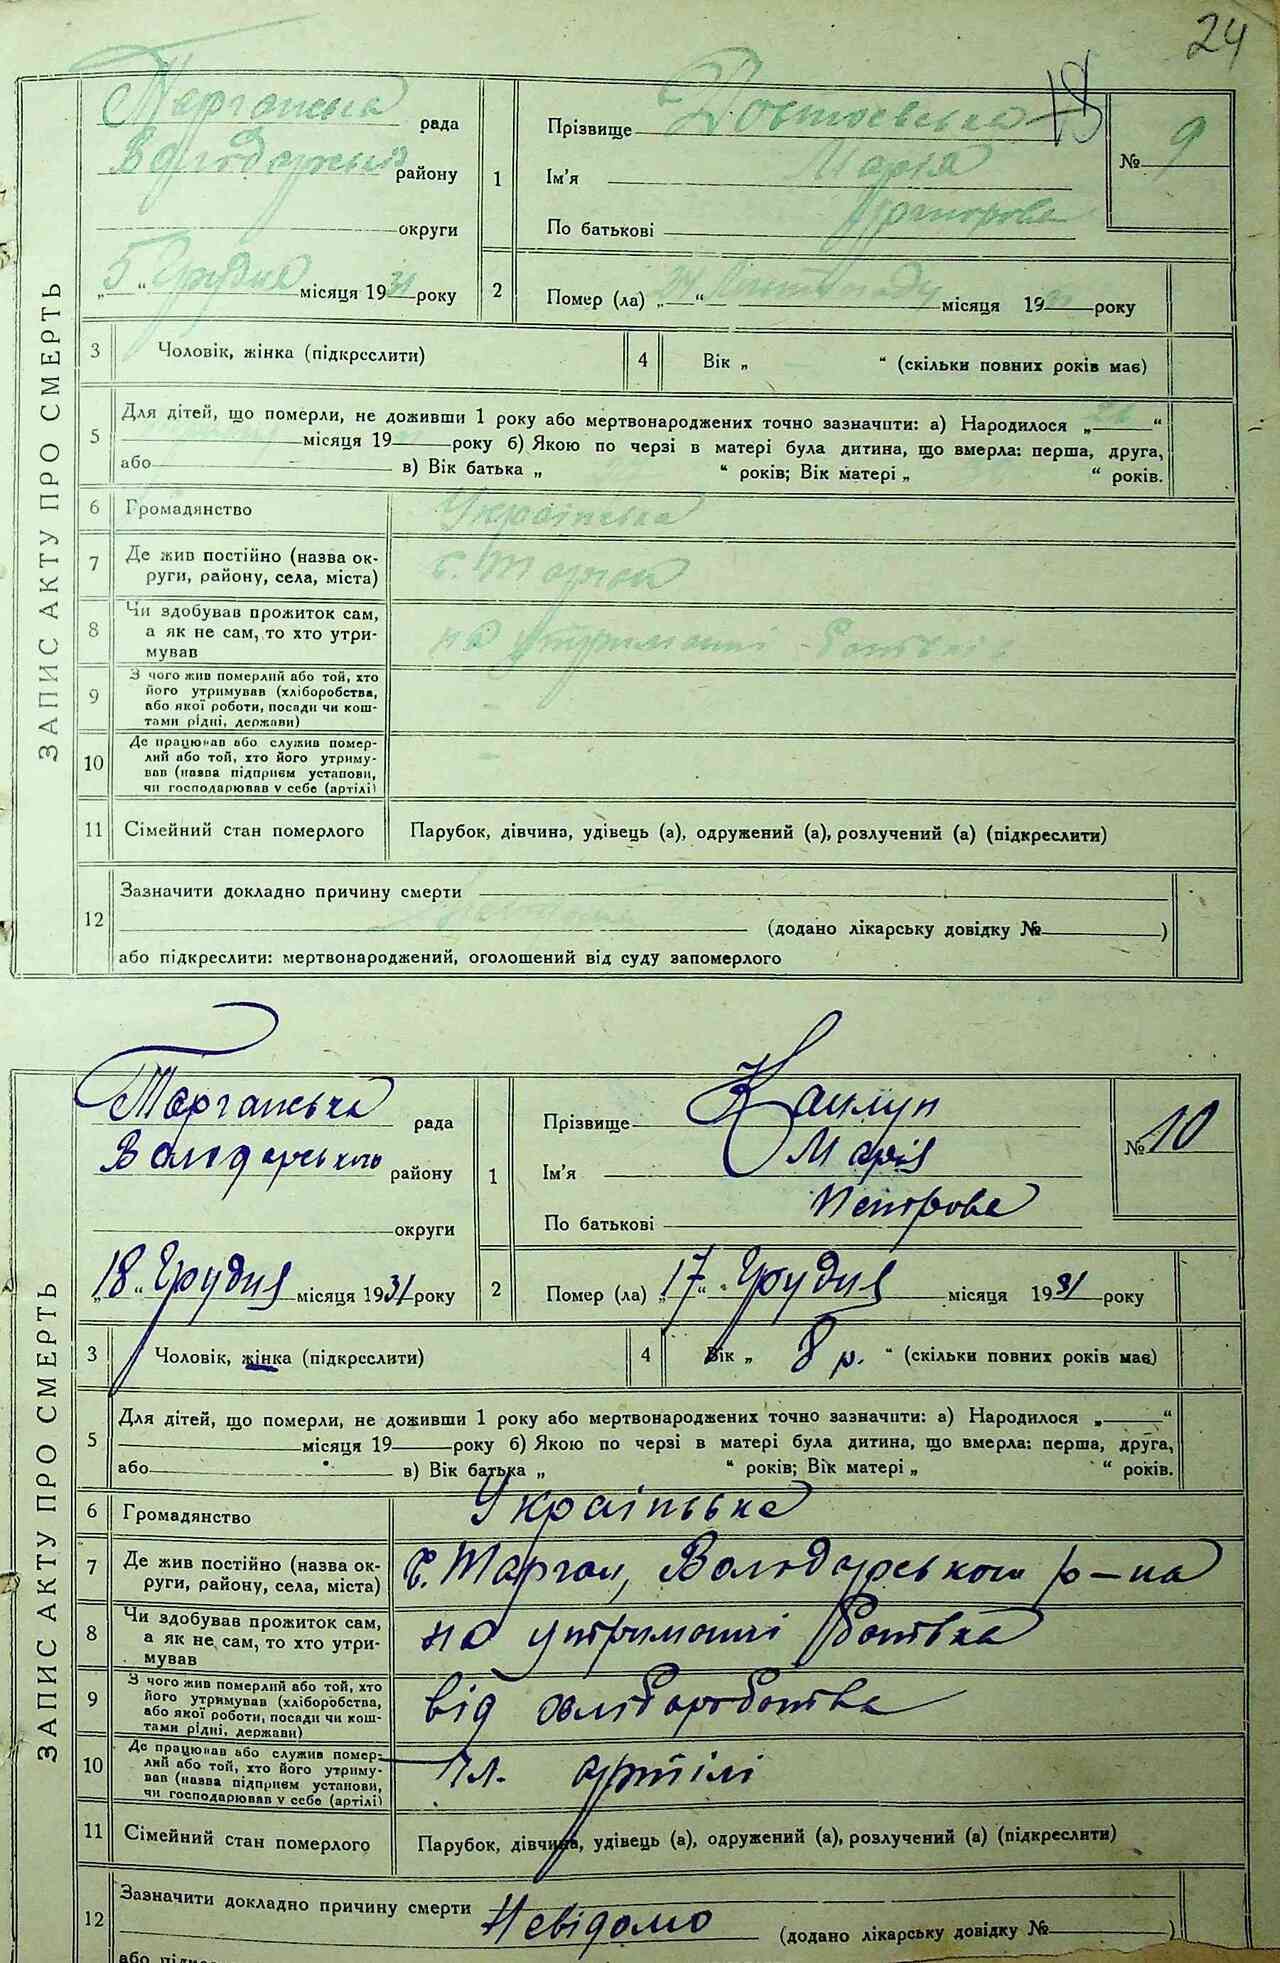 24
ЗАПИС АКТУ ПРО СМЕРТЬ
Тарганська рада
Володарськ району
округи
„5“ Грудня місяця 1931 року
1 Прізвище
Ім'я Марія
По батькові
№ 9
18
2 Помер (ла) „ “ Листопаду місяця 19 року
3 Чоловік, жінка (підкреслити)
4 Вік „ “ (скільки повних років має)
5 Для дітей, що померли, не доживши 1 року або мертвонароджених точно зазначити: а) Народилося „ “
місяця 19 року б) Якою по черзі в матері була дитина, що вмерла: перша, друга,
або в) Вік батька „ “ років; Вік матері „ “ років.
6 Громадянство Українська
7 Де жив постійно (назва ок-
руги, району, села, міста) с. Тарган
8 Чи здобував прожиток сам,
а як не сам, то хто утри-
мував на утриманні батьків
9 З чого жив померлий або той, хто
його утримував (хліборобства,
або якої роботи, посади чи кош-
тами рідні, держави)
10 Де працював або служив помер-
лий або той, хто його утриму-
вав (назва підприєм установи,
чи господарював у себе (артілі)
11 Сімейний стан померлого Парубок, дівчина, удівець (а), одружений (а), розлучений (а) (підкреслити)
12 Зазначити докладно причину смерти
(додано лікарську довідку № )
або підкреслити: мертвонароджений, оголошений від суду запомерлого
ЗАПИС АКТУ ПРО СМЕРТЬ
Тарганська рада
Володарського району
округи
„18“ Грудня місяця 1931 року
1 Прізвище
Ім'я Марія
По батькові Петрова
№ 10
2 Помер (ла) „17“ Грудня місяця 1931 року
3 Чоловік, жінка (підкреслити)
4 Вік „ 8 р. “ (скільки повних років має)
5 Для дітей, що померли, не доживши 1 року або мертвонароджених точно зазначити: а) Народилося „ “
місяця 19 року б) Якою по черзі в матері була дитина, що вмерла: перша, друга,
або в) Вік батька „ “ років; Вік матері „ “ років.
6 Громадянство Українське
7 Де жив постійно (назва ок-
руги, району, села, міста) с. Тарган, Володарського р-на
8 Чи здобував прожиток сам,
а як не сам, то хто утри-
мував на утриманні батька
9 З чого жив померлий або той, хто
його утримував (хліборобства,
або якої роботи, посади чи кош-
тами рідні, держави) від хліборобства
10 Де працював або служив помер-
лий або той, хто його утриму-
вав (назва підприєм установи,
чи господарював у себе (артілі) чл. артілі
11 Сімейний стан померлого Парубок, дівчина, удівець (а), одружений (а), розлучений (а) (підкреслити)
12 Зазначити докладно причину смерти Невідомо
(додано лікарську довідку № )